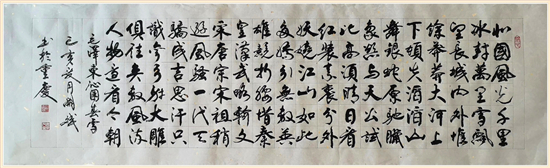 北國風光千里
冰封萬里雪飘
望長城内外惟
餘莽莽大河上
下頓失滔滔山
舞銀蛇原驰臘
象欲与天公試
比高須晴日看
红裝素裹分外
妖娆江山如此
多嬌引無數英
雄競折腰惜秦
皇漢武略輸文
采唐宗宋祖稍
逊風騷一代天
驕成吉思汗只
識弯弓射大雕
俱往矣数風流
人物還看今朝
毛澤東沁園春雪
己亥夏月
书於重慶